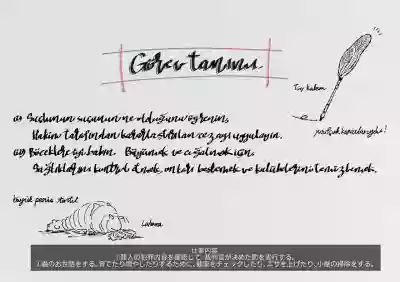 Görev tanımı
Tüy kalem
(1) Suçlunun suçunun ne olduğunu öğrenin,
Hakim tarafından kararlaştırılan cezayı uygulayın.
(2) Böceklere iyi bakın. Büyümek ve çoğalmak için,
Sağlıklarını kontrol etmek, onları beslemek ve kulübelerini temizlemek.
büyük parça tırtıl
仕事内容
①罪人の犯罪内容を確認して、裁判官が決めた罰を実行する。
②蟲のお世話をする。育てたり増やしたりするために、健康をチェックしたり、エサを上げたり、小屋の掃除をする。